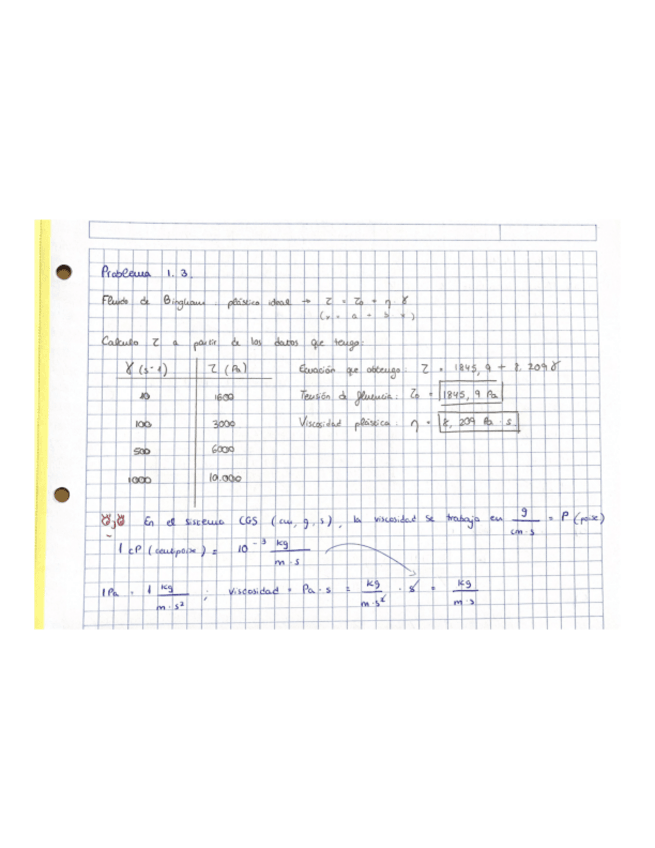 Problema 1.3.
Fluido de Bingham: plástico ideal → τ = τ₀ + η · γ
(y = a + b x)
Calculo τ a partir de los datos que tengo:
γ (s-1) τ (Pa)
10 1600
100 3000
500 6000
1000 10.000
Ecuación que obtengo: τ = 1845,9 + 8,209 γ
Tensión de fluencia: τ₀ = 1845,9 Pa
Viscosidad plástica: η = 8,209 Pa · s
En el sistema CGS (cm, g, s), la viscosidad se trabaja en g / cm · s = P (poise)
1 cP (centipoise) = 10⁻³ kg / m · s
1 Pa = 1 kg / m · s² ; viscosidad = Pa · s = kg / m · s² · s = kg / m · s